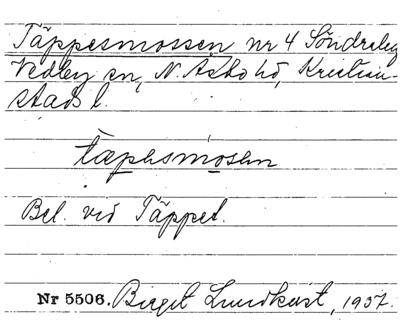 Täppesmossen nr 4 Söndraby
Vedby sn, N. Åsbo hd, Kristian-
stads l.
täpesmosen
Bel. vid Täppet.
Nr 5506. Birgit Lundkvist, 1937.